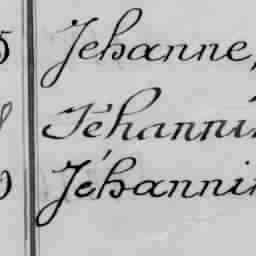 Jehanne,
Jéhannin
Jéhannin